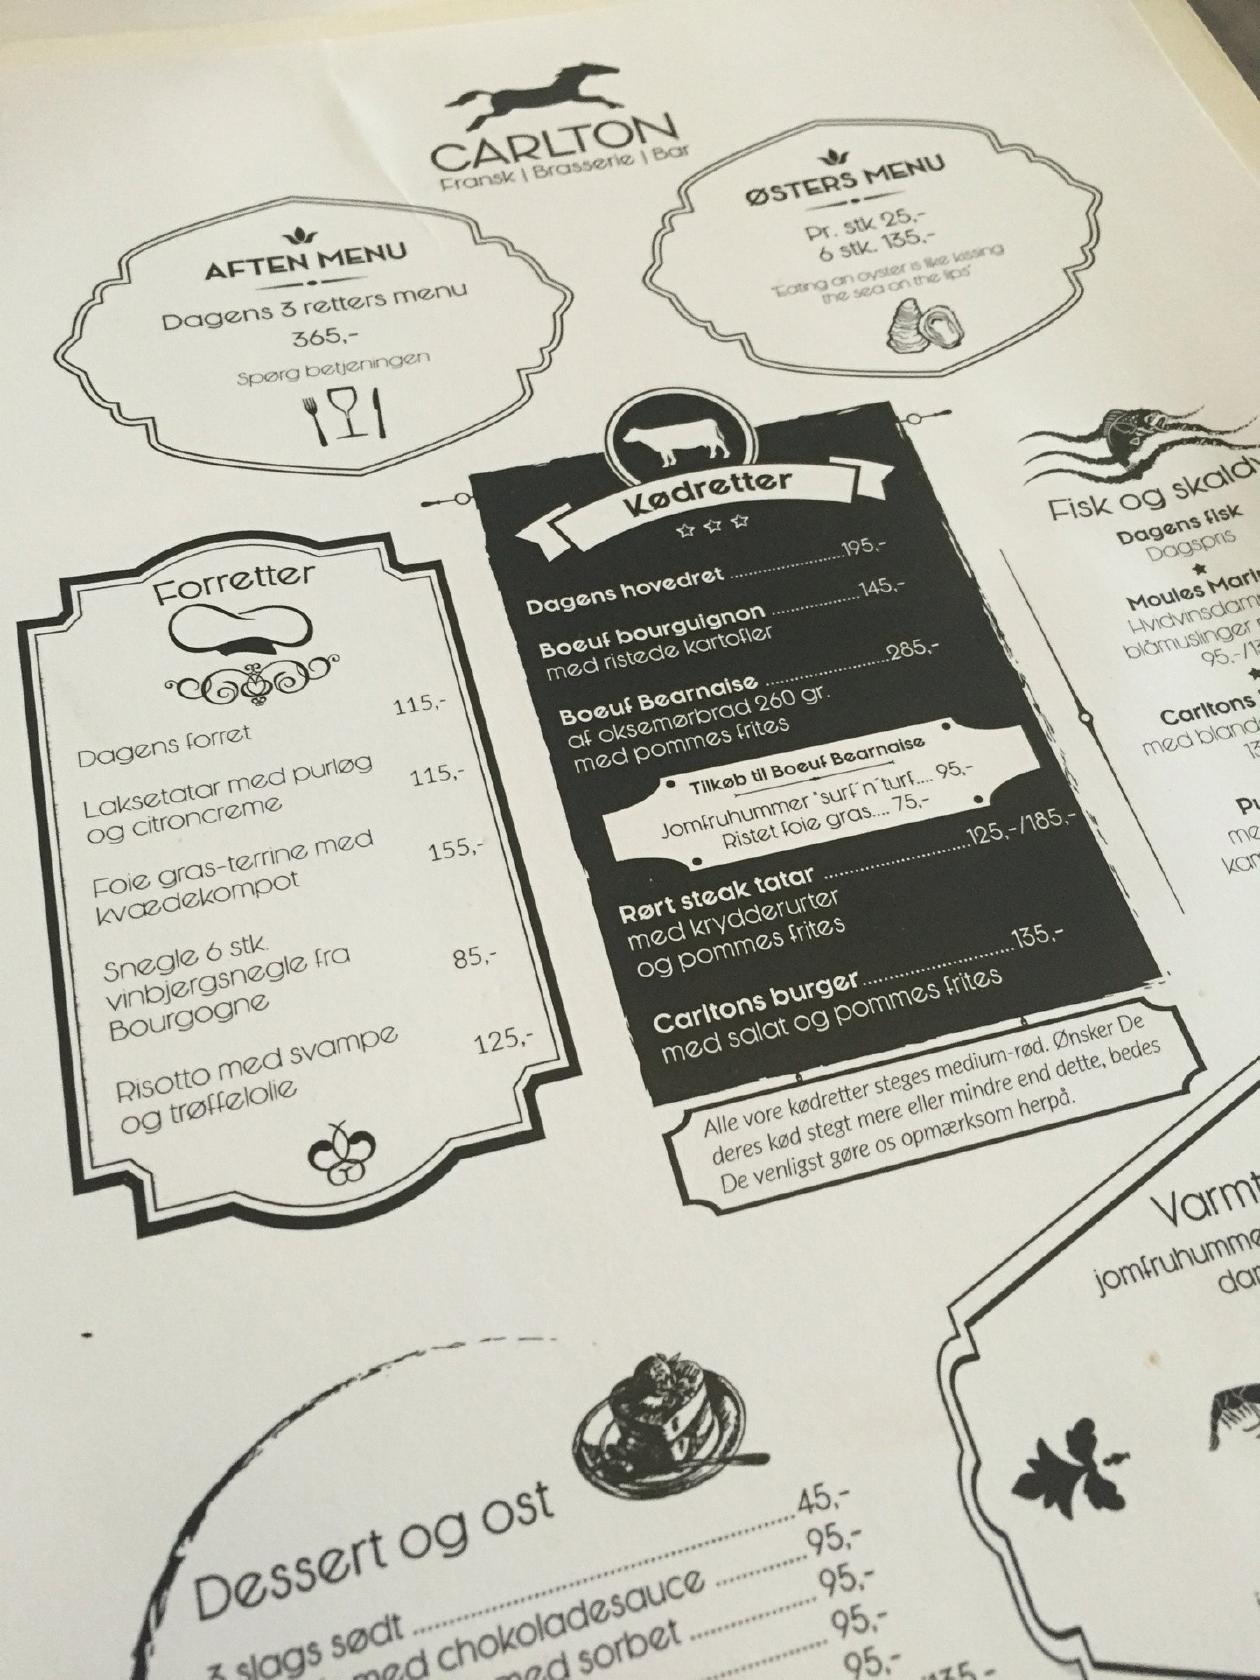 CARLTON
Fransk | Brasserie | Bar
AFTEN MENU
Dagens 3 retters menu
365,-
Spørg betjeningen
ØSTERS MENU
Pr. stk 25,-
6 stk. 135,-
"Eating an oyster is like kissing
the sea on the lips"
Forretter
Dagens forret 115,-
Laksetatar med purløg 115,-
og citroncreme
Foie gras-terrine med 155,-
kvædekompot
Snegle 6 stk.
vinbjergsnegle fra 85,-
Bourgogne
Risotto med svampe 125,-
og trøffelolie
Kødretter
Dagens hovedret ..................195,-
Boeuf bourguignon ..............145,-
med ristede kartofler
Boeuf Bearnaise ....................285,-
af oksemørbrad 260 gr.
med pommes frites
Tilkøb til Boeuf Bearnaise
Jomfruhummer "surf´n´turf.... 95,-
Ristet foie gras.... 75,-
Rørt steak tatar .......................125,-/185,-
med krydderurter
og pommes frites
Carltons burger........................135,-
med salat og pommes frites
Alle vore kødretter steges medium-rød. Ønsker De
deres kød stegt mere eller mindre end dette, bedes
De venligst gøre os opmærksom herpå.
Fisk og
Dagens fisk
Dagspris
Moules
blåmuslinger
95,-
Carltons
med
jomfruhumme
Dessert og ost
3 slags sødt ........................................45,-
med chokoladesauce ..........95,-
med sorbet ................95,-
95,-
95,-
135,-